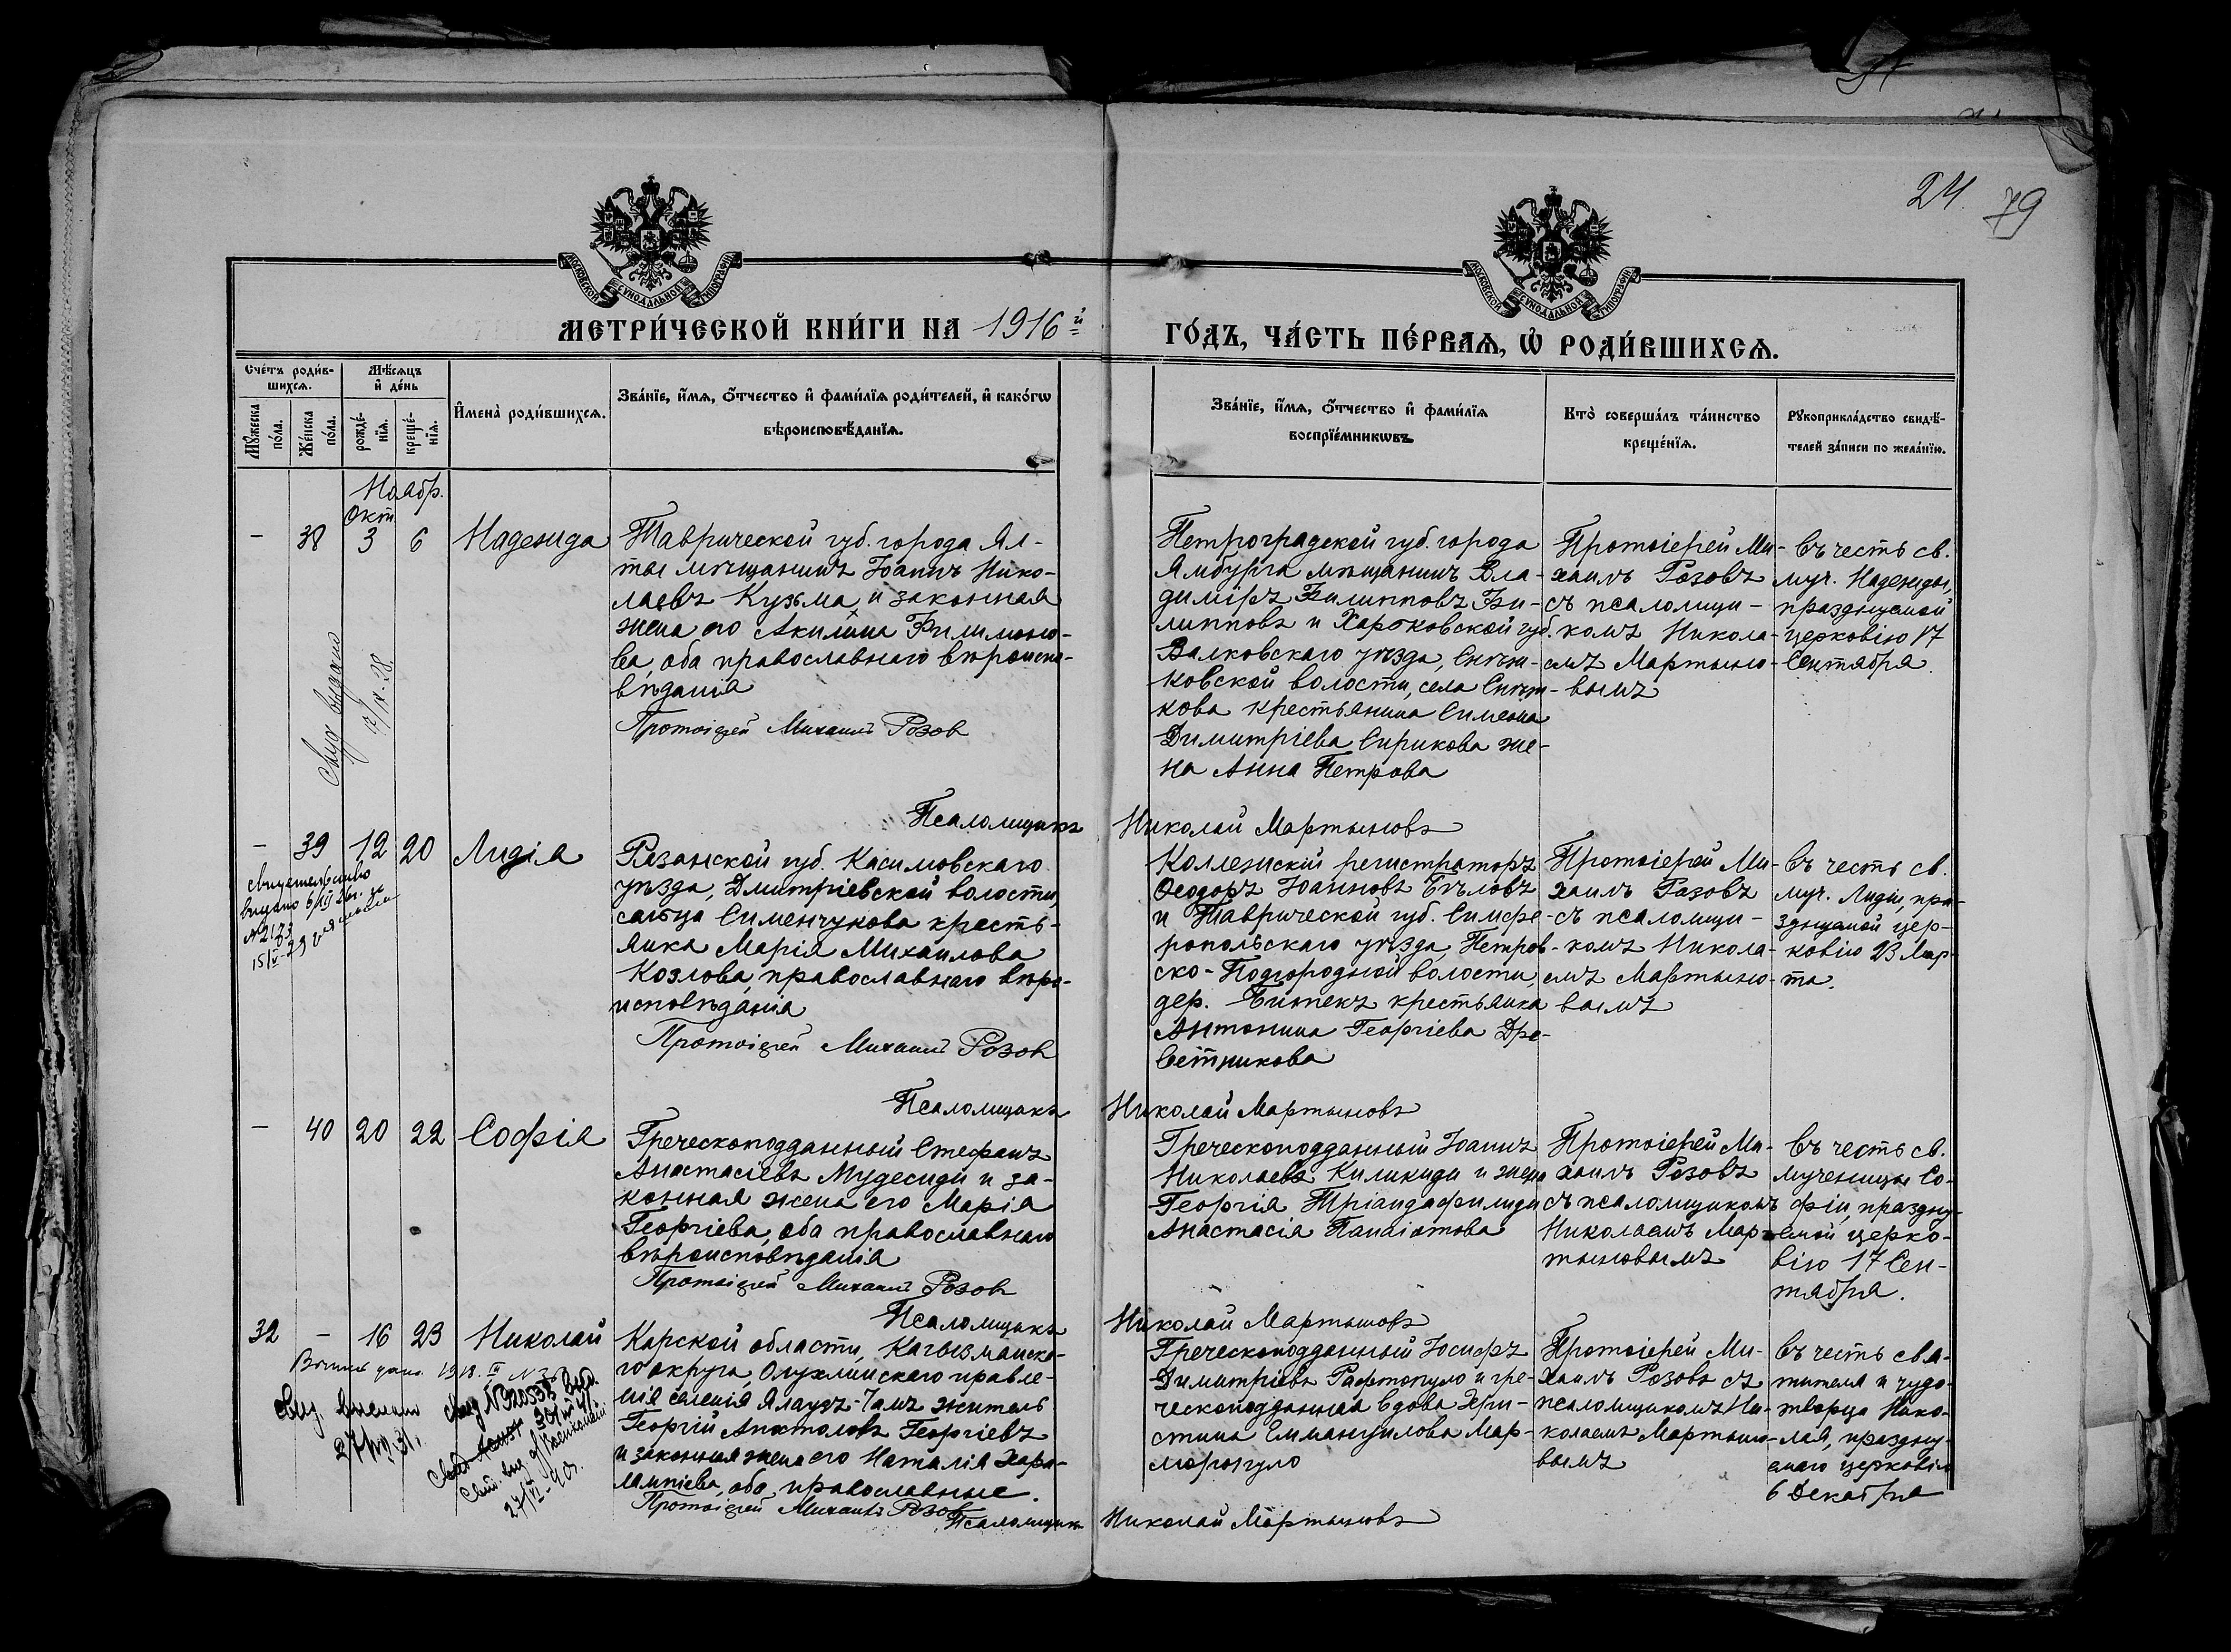 24.
79
МОСКОВСКОЙ СѴНОДАЛЬНОЙ ТИПОГРАФІИ
МОСКОВСКОЙ СѴНОДАЛЬНОЙ ТИПОГРАФІИ
МЕТРИ́ЧЕСКОЙ КНИ́ГИ НА 1916й
ГО́ДЪ, ЧА́СТЬ ПЕ́РВАѦ, Ѡ҆ РОДИ́ВШИХСѦ.
Сче́тъ роди́в-
шихсѧ.
Мѣ́сѧцъ
и҆ де́нь
Мꙋ́жеска
по́ла.
Же́нска
по́ла.
рожде́-
нїѧ.
креще́-
нїѧ.
И҆мена̀ роди́вшихсѧ.
Зва́нїе, и҆́мѧ, ѻ҆́тчество и҆ фами́лїѧ роди́телей, и҆ како́гѡ
вѣроисповѣ́данїѧ.
Зва́нїе, и҆́мѧ, ѻ҆́тчество и҆ фами́лїѧ
воспрїе́мникѡвъ.
Кто̀ соверша́лъ та́инство
креще́нїѧ.
Рꙋкоприкла́дство свидѣ́-
телей за́писи по жела́нїю.
Ноябр.
Окт
– 38 3 6 Надежда
Таврической губ. города Ял-
ты мѣщанинъ Іоаннъ Нико-
лаевъ Кузьма, и законная
жена его Акилина Филимоно-
ва, оба православнаго вѣроиспо-
вѣданія
Протоіерей Михаилъ Розов
Петроградской губ. города
Ямбурга мѣщанинъ Вла-
диміръ Филипповъ Фи-
липповъ и Харьковской губ.
Валковскаго уѣзда, Снѣж-
ковской волости, села Снѣж-
кова крестьянина Симеона
Димитріева Сирикова же-
на Анна Петрова
Протоіерей Ми-
хаилъ Розовъ
съ псаломщи-
комъ Никола-
емъ Мартыно-
вымъ
Въ честь св.
муч. Надежды,
празднуемой
церковію 17
Сентября.
Свид выдано
Псаломщикъ Николай Мартыновъ
– 39 12 20 Лидія
Свидетельство
выдано
№ 2173
Рязанской губ. Касимовскаго
уѣзда, Дмитріевской волости,
сельца Сименчукова кресть-
янка Марія Михаилова
Козлова, православнаго вѣро-
исповѣданія
Протоіерей Михаилъ Розов
Коллежскій регистраторъ
Ѳеодоръ Іоанновъ Бѣловъ
и Таврической губ. Симфе-
ропольскаго уѣзда, Петров-
ско-Подгородной волости,
дер. Битекъ крестьянка
Антонина Георгіева Дре-
ветникова
Протоіерей Ми-
хаилъ Розовъ
съ псаломщи-
комъ Никола-
емъ Мартыно-
вымъ
Въ честь св.
муч. Лидіи, пра-
зднуемой цер-
ковію 23 Мар-
та.
Псаломщикъ Николай Мартыновъ
– 40 20 22 Софія
Греческоподданный Стефанъ
Анастасіевъ Мудесиди и за-
конная жена его Марія
Георгіева, оба православнаго
вѣроисповѣданія
Протоіерей Михаилъ Розов
Греческоподданный Іоаннъ
Николаевъ Киликиди и жена
Георгія Тріандафилиди
Анастасія Панаіотова
Протоіерей Ми-
хаилъ Розовъ
съ псаломщикомъ
Николаемъ Мар-
тыновымъ
Въ честь св.
мученицы Со-
фіи, праздну-
емой церко-
вію 17 Сен-
тября.
Псаломщикъ Николай Мартыновъ
32 – 16 23 Николай
Карской области, Кагызманска-
го округа, Олухлинскаго правле-
нія селенія Ялаузъ-Чамъ житель
Георгій Апостоловъ Георгіевъ
и законная жена его Наталія Хара-
лампіева, оба православные.
Протоіерей Михаилъ Розов
Греческоподданный Іосифъ
Димитріевъ Рафтопуло и гре-
ческоподданная вдова Хри-
стина Еммануилова Мар-
моропуло
Протоіерей Ми-
хаилъ Розовъ съ
псаломщикомъ Ни-
колаемъ Мартыно-
вымъ
Въ честь свя-
тителя и чудо-
творца Нико-
лая, праздну-
емаго церковію
6 Декабря
Псаломщикъ Николай Мартыновъ